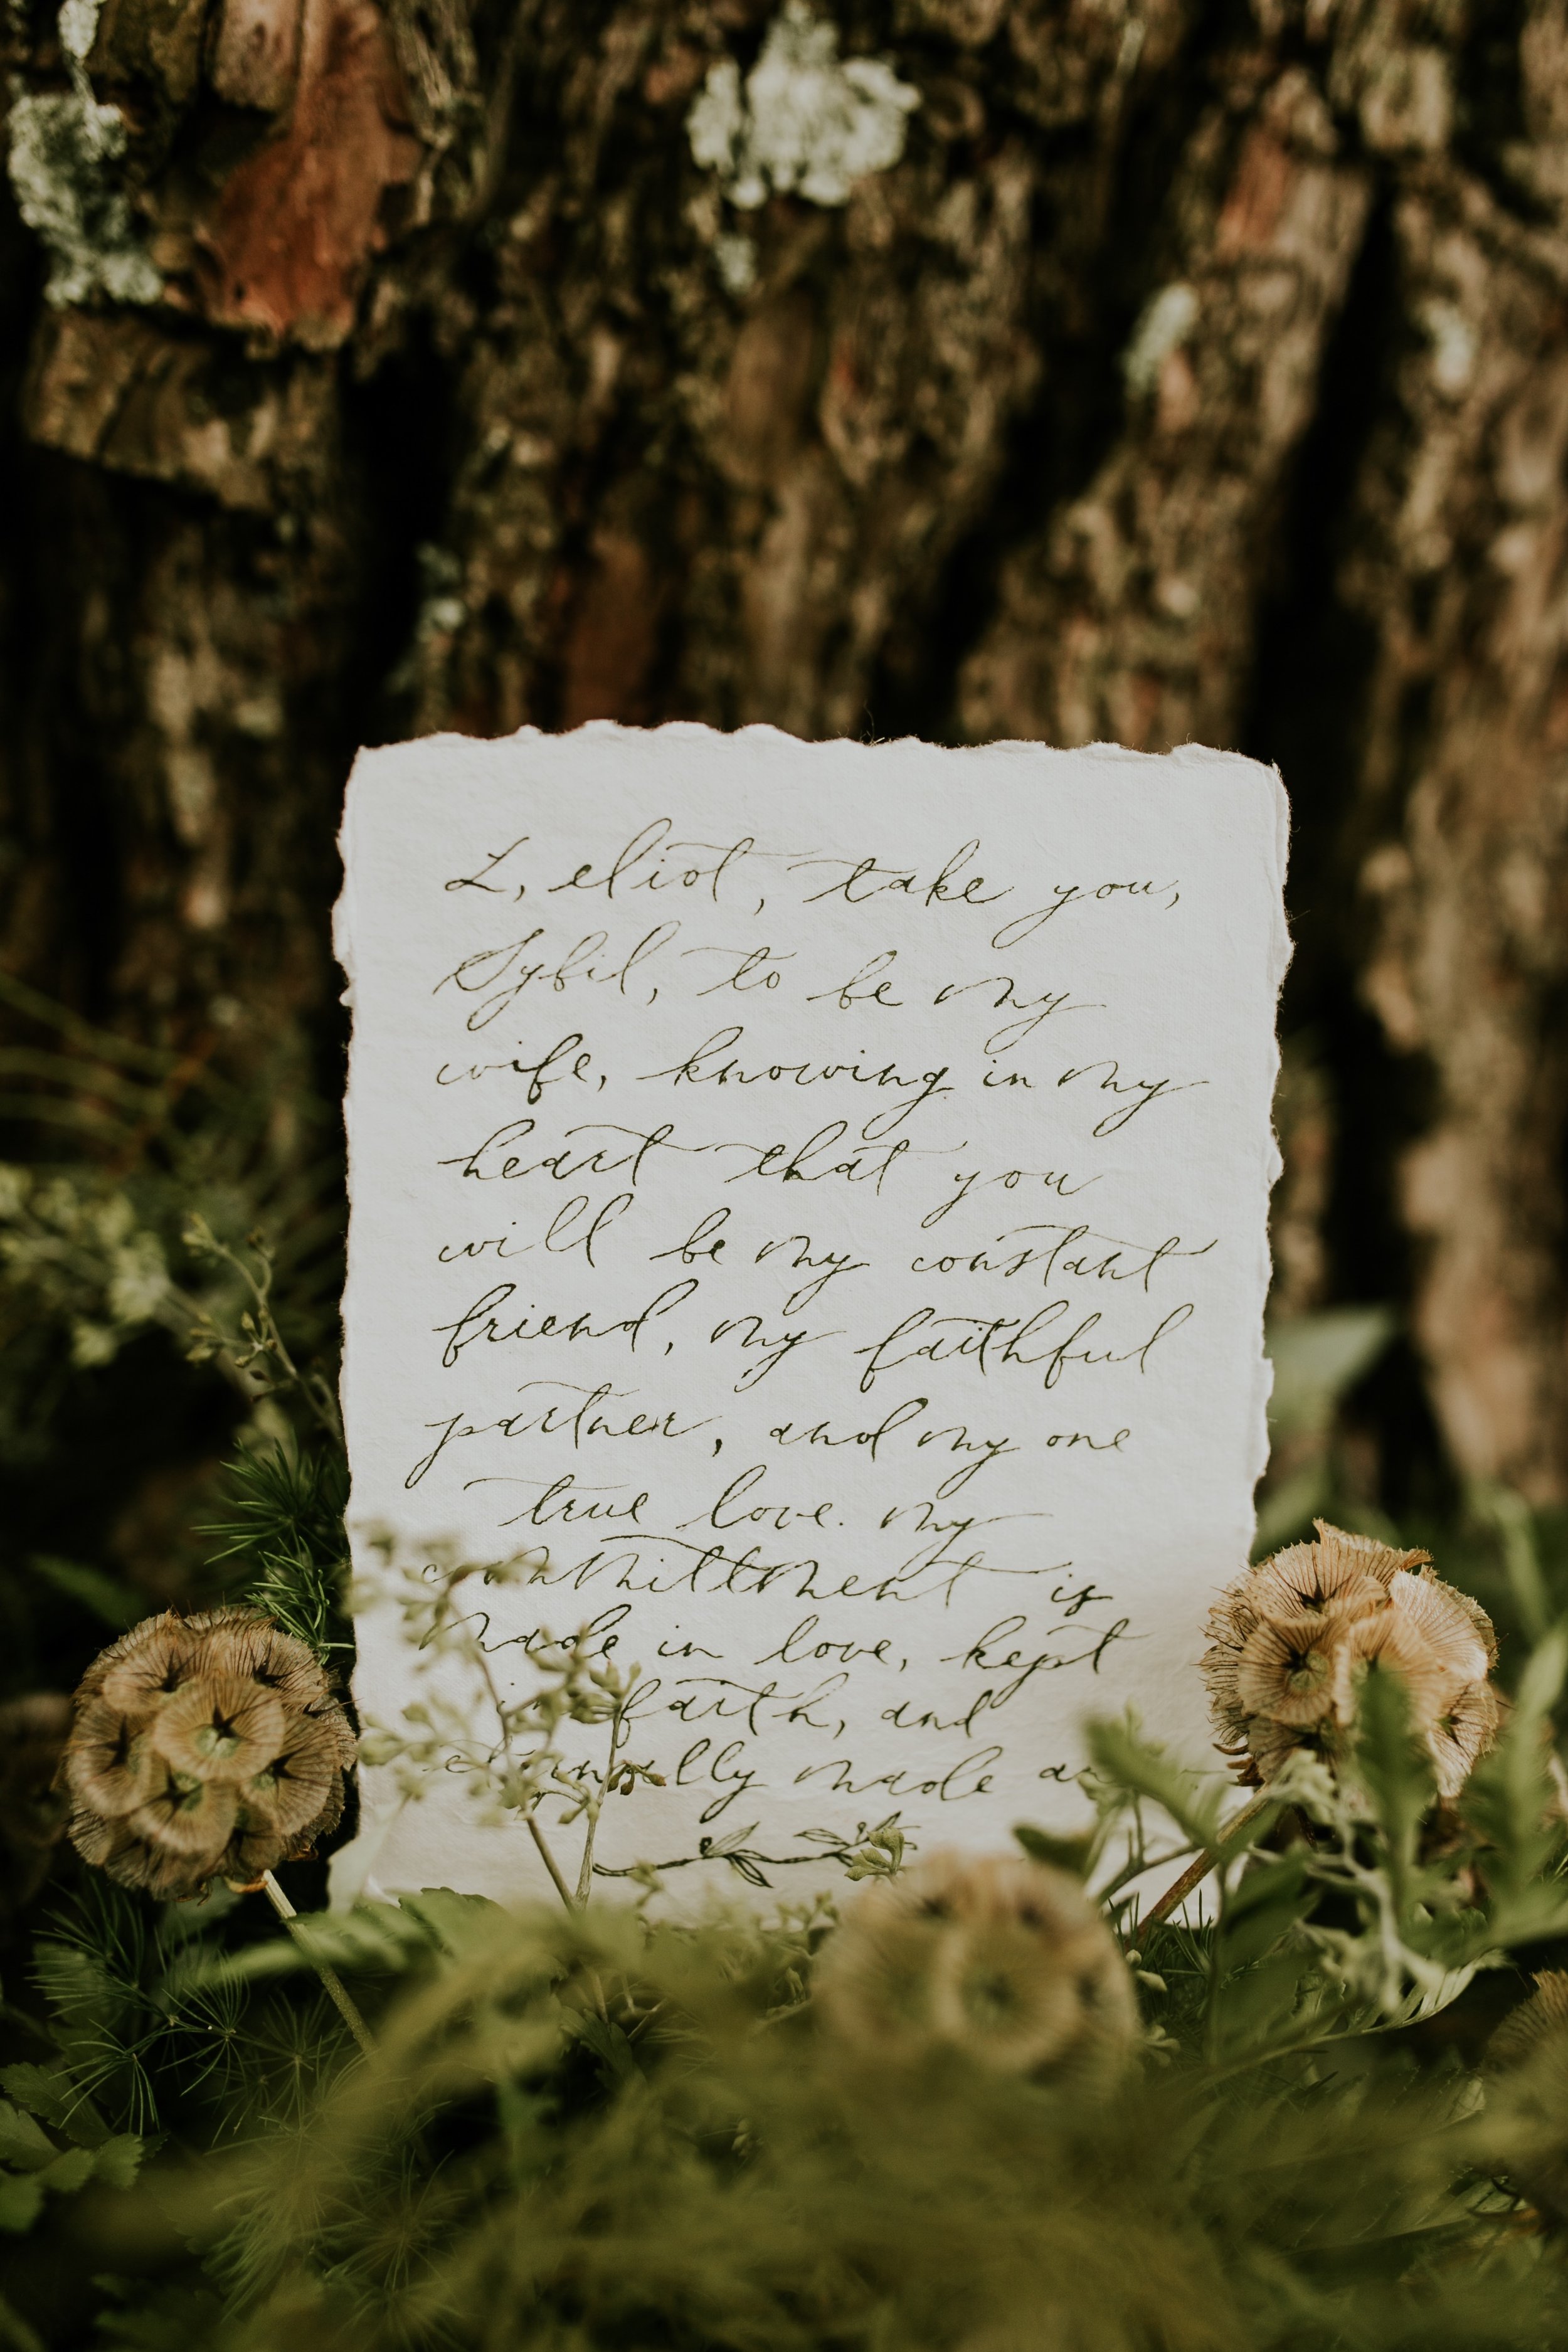 I, eliot, take you,
Sybil, to be my
wife, knowing in my
heart that you
will be my constant
friend, my faithful
partner, and my one
true love. my
committment is
made in love, kept
in faith, and
eternally made